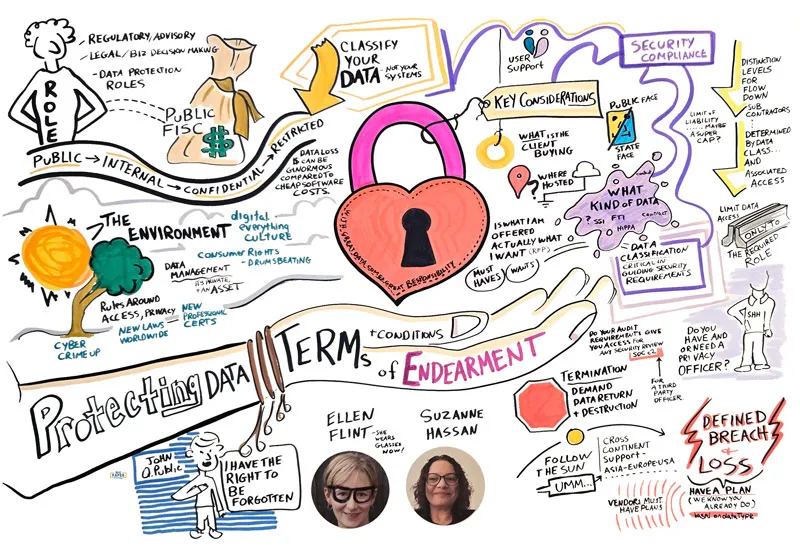 ROLE
- REGULATORY/ADVISORY
- LEGAL/BIZ DECISION MAKING
- DATA PROTECTION
ROLES
PUBLIC
FISC
$
PUBLIC → INTERNAL → CONFIDENTIAL → RESTRICTED
CLASSIFY
YOUR
DATA - NOT YOUR
SYSTEMS
DATA LOSS
CAN BE
GINORMOUS
COMPARED TO
CHEAP SOFTWARE
COSTS.
THE
ENVIRONMENT
digital
everything
CULTURE
CONSUMER RIGHTS
- DRUMSBEATING
DATA
MANAGEMENT
IT'S PRIVATE
AN ASSET
RULES AROUND
ACCESS, PRIVACY
CYBER
CRIME UP
NEW LAWS
WORLDWIDE
= NEW
PROFESSIONAL
CERTS
WITH GREAT DATA COMES GREAT RESPONSIBILITY
USER
SUPPORT
KEY CONSIDERATIONS
WHAT IS THE
CLIENT
BUYING
WHERE
HOSTED
IS WHAT I AM
OFFERED
ACTUALLY WHAT
I WANT (RFP)
MUST
HAVES
WANTS
PUBLIC FACE
STATE
FACE
WHAT
KIND OF DATA
? SSI FTI
HIPPA
CONTRACT
SECURITY
COMPLIANCE
LIMIT OF
LIABILITY
...... MAYBE
A SUPER
CAP?
DISTINCTION
LEVELS
FOR FLOW
DOWN
SUB
CONTRACTORS
DETERMINED
BY DATA
CLASS...
AND
ASSOCIATED
ACCESS
LIMIT DATA
ACCESS
ONLY TO
THE REQUIRED
ROLE
DATA
CLASSIFICATION
CRITICAL IN
GUIDING SECURITY
REQUIREMENTS
SHH
DO YOU
HAVE AND
OR NEED A
PRIVACY
OFFICER?
Protecting DATA
TERMS + CONDITIONS
of ENDEARMENT
DO YOUR AUDIT
REQUIREMENTS GIVE
YOU ACCESS FOR
ANY SECURITY REVIEW
SOC 2
FOR
A THIRD
PARTY
OFFICER.
TERMINATION
DEMAND
DATA RETURN
+ DESTRUCTION
FOLLOW
THE SUN
UMM...
CROSS
CONTINENT
SUPPORT -
ASIA-EUROPE USA
VENDORS MUST
HAVE PLANS
DEFINED
BREACH
+ LOSS
HAVE A PLAN
(WE KNOW YOU
ALREADY DO)
JOHN
Q. PUBLIC
I HAVE THE
RIGHT TO
BE
FORGOTTEN
ELLEN
FLINT - SHE
WEARS
GLASSES
NOW!
SUZANNE
HASSAN